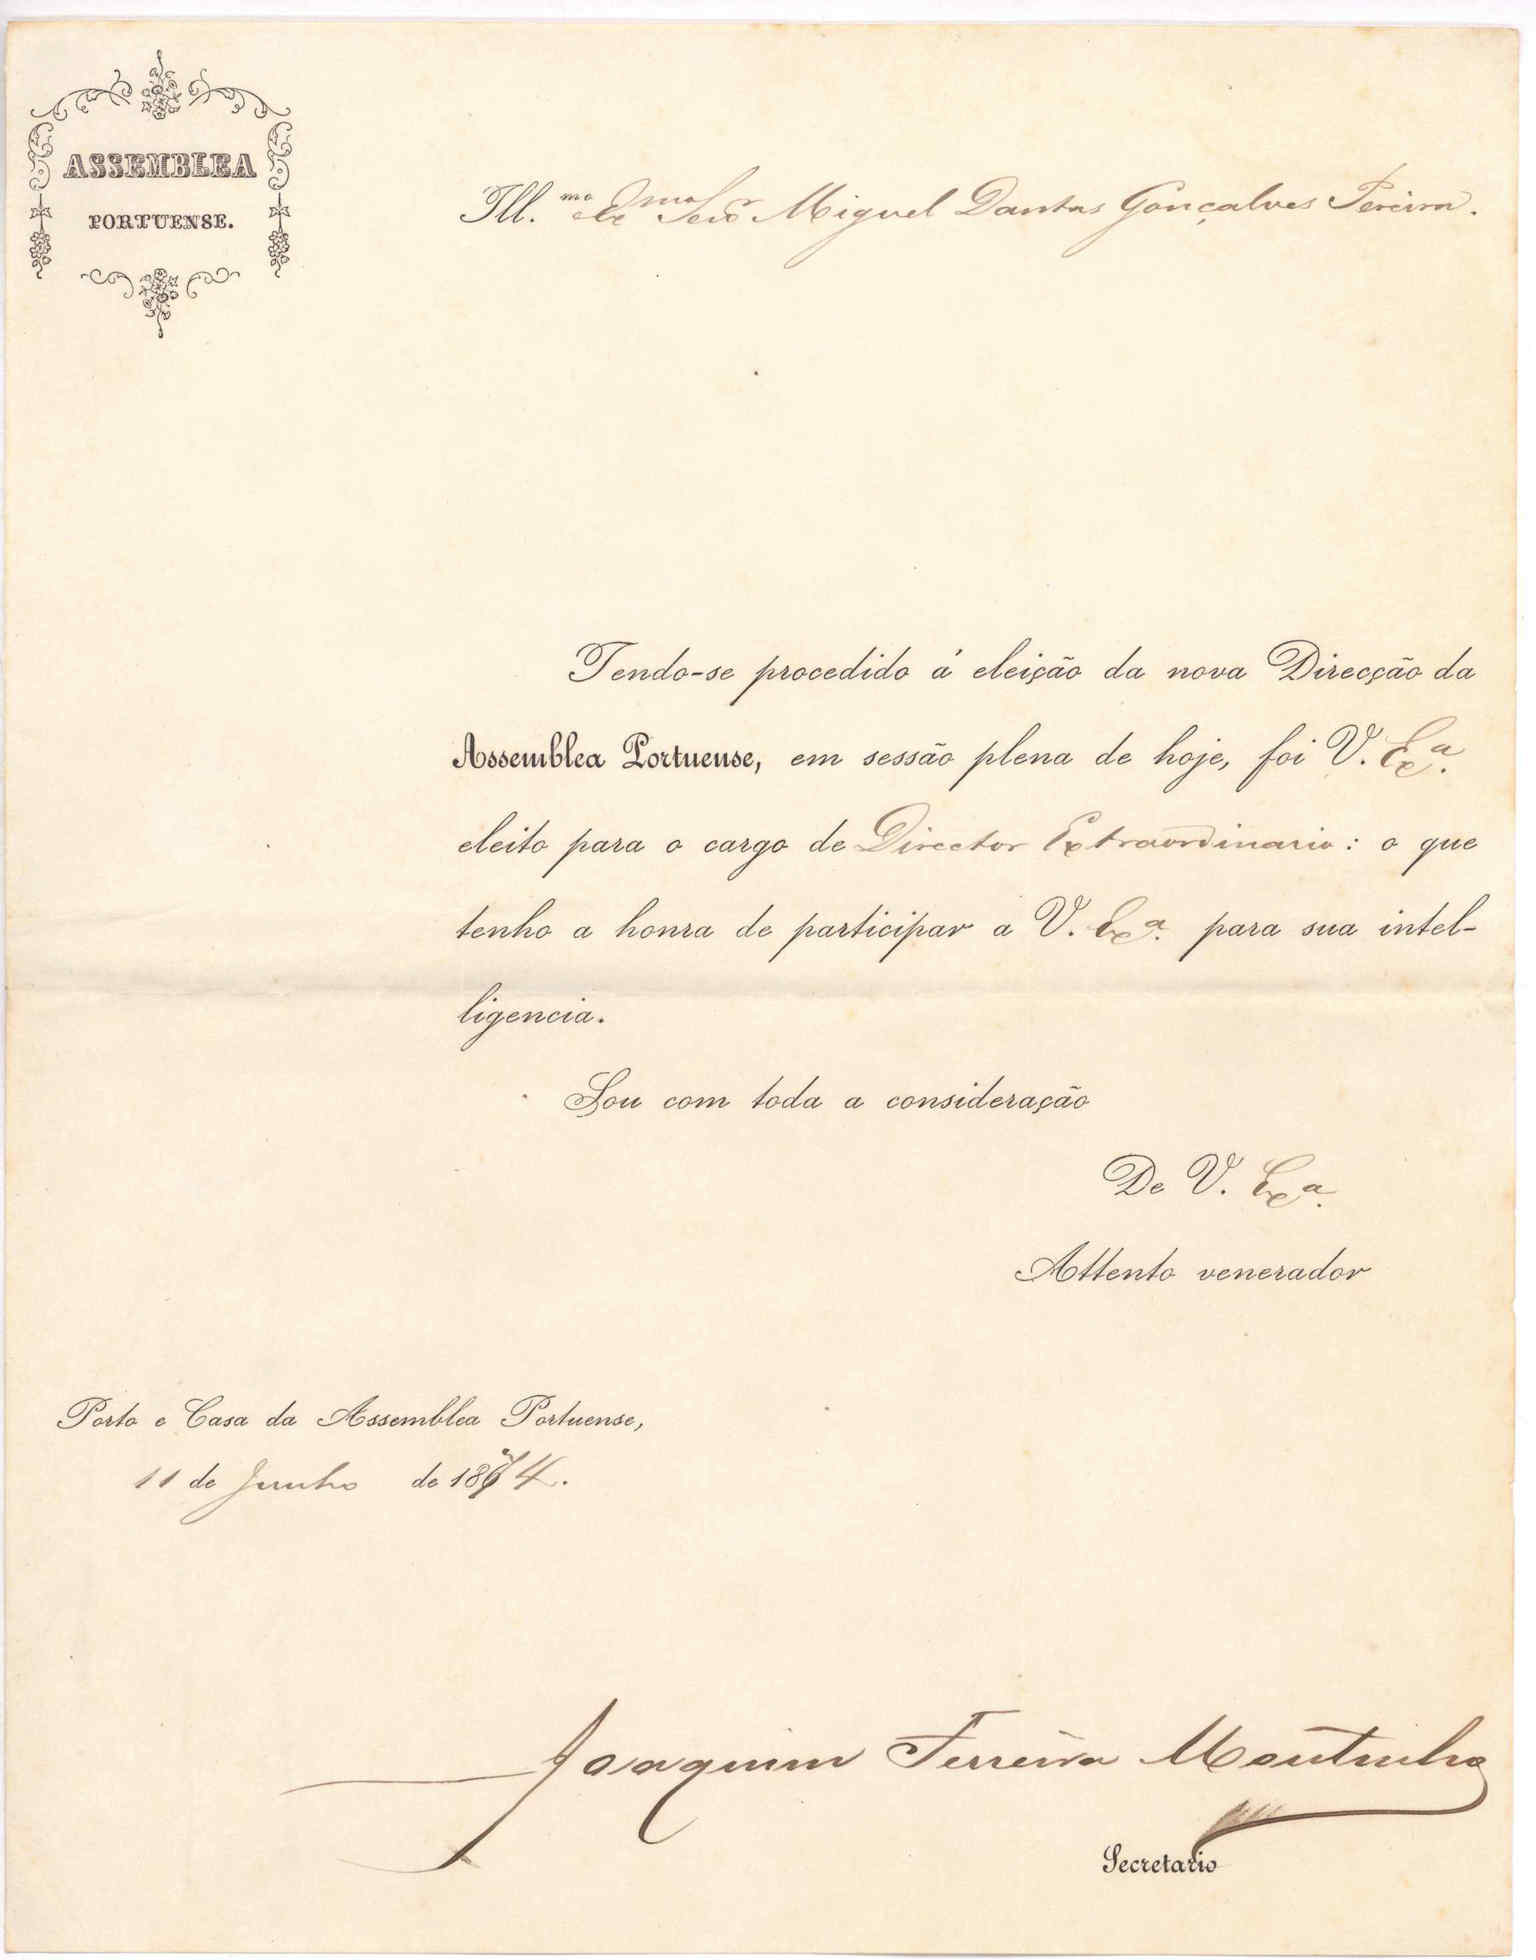 ASSEMBLEA
PORTUENSE.
Ill.mo e Exmo Senr Miguel Dantas Gonçalves Pereira.
Tendo-se procedido á eleição da nova Direcção da
Assemblea Portuense, em sessão plena de hoje, foi V. Exa.
eleito para o cargo de Director Extraordinario: o que
tenho a honra de participar a V. Exa. para sua intel-
ligencia.
Sou com toda a consideração
De V. Exa.
Attento venerador
Porto e Casa da Assemblea Portuense,
11 de Junho de 1874.
Joaquim Ferreira Moutinho
Secretario